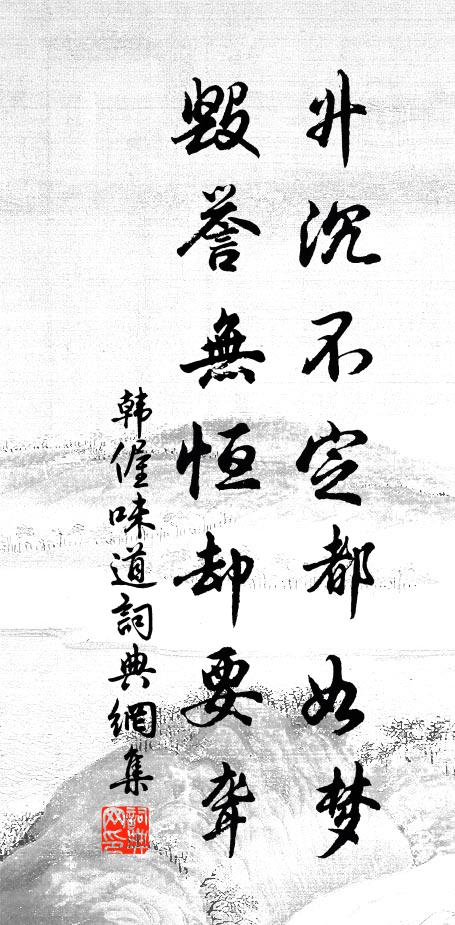 升沉不定都如梦
毁誉無恒却要聋
韩偓味道詞典網集